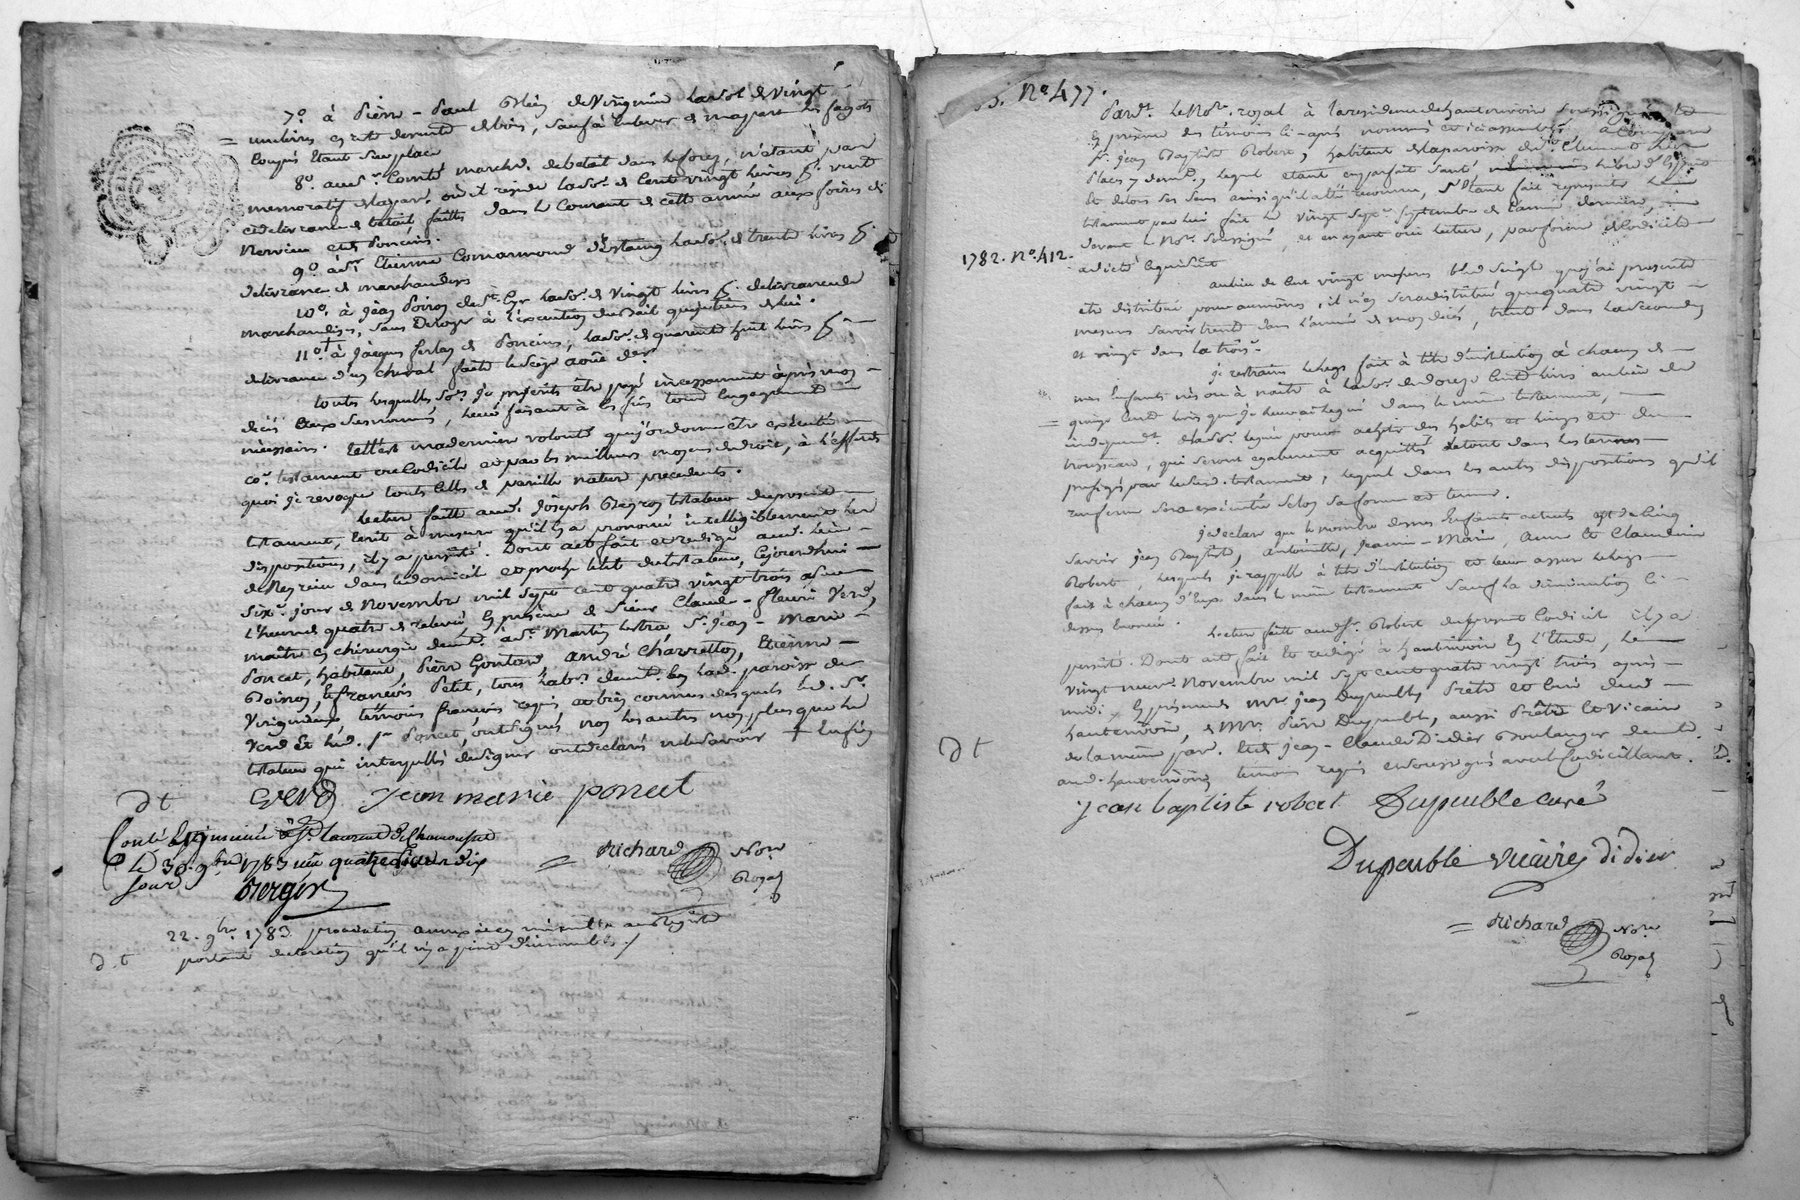 7.° à pierre - paul de viriginieu la so.e de vingt
une livres et reste de vente de bois, sauf à enlever et un les fagots
coupés étant sur place
8.° au s.r Comte march.d de betail dans le forez, n'étant pas
memoratif de la par.e où il reside la so.e de cent vingt livres p.r vente
et delivrance de betail faitte dans le courant de cette année aux foires de
Nervieu et de poncins.
9.° à s.r Etienne Comarmond d'estaing la so.e de trente livres p.r
delivrance de marchandises
10.° à jean poiron de S.t Cyr la so.e de vingt livres p.r delivrance de
marchandises, sans deroger à l'execution du bail
11.° à jacques ferlay de poncins, la so.e de quarente huit livres p.r
delivrance d'un cheval faitte le seize août der.r
toutes lesquelles so.es je prescrits être payé incessamment après mon
décès à eux susnommés, leur faisant à les fins tout engagement
nécessaire. telle est ma derniere volonté que j'ordonne être exécutée
co.e testament ou codicile et par les meilleurs moyens de droit, à l'effet de
quoi je revoque touts ceux de pareille nature precedents.
lecture faitte au d.t joseph testateur du present
testament, écrit à mesure qu'il a prononcé intelligiblement les
dispositions, il y a persisté. Dont acte fait et redigé au d. lieu
de dans le domicile et proche le lit du testateur, ce jourd'huy
six.e jour de Novembre mil sept cent quatre vingt trois
l'heure de quatre de relevée En présence de sieur Claude - fleuri verd,
maître en chirurgie demt. à s.t Martin lestra s.r jean - marie
poncet, habitant, pierre gontard, andré charretton, Etienne
poinson, et françois petit, tous hab.ts demt. en la d. paroisse de
Virigneux témoins françois requis et bien connus desquels le d. s.r
verd et le d. s.r poncet, ont signé non les autres non plus que le
testateur qui interpellés de signer ont declarés ne le savoir
d t verd jean marie poncet
Contr.lé et insinué à S.t laurent de Chamousset
Le 30. 9.bre 1783 reçu quatre livres dix
sous
Berger
= Richard No.re
Royal
22. 9.bre 1783. procuration annexée en minutte au registre
portant declaration qu'il n'y a point d'immeubles ./
d. t
N.° 477.
Pard.t le No.re royal à la residence de hauterivoire soussigné et
En présence des témoins ci-après nommés et ici assemblés, a comparu
s.r jean Baptiste Robert, habitant de la paroisse de S.t Clement les
places y demt., lequel étant en parfaite santé libre d'esprit
et de tous ses sens ainsi qu'il a été reconnu, s'étant fait représenter le
testament par lui fait le vingt sept septembre de l'année derniere,
devant le No.re soussigné, et en ayant oui lecture, par forme de codicile
a dicté le quisuit
1782. N.° 412.
au lieu de cent vingt mesures bled seigle que j'ai presenté
être distribué pour aumônes, il n'en sera distribué que quatre vingt
mesures savoir trente dans l'année de mon décès, trente dans la seconde
et vingt dans la trois.e
je restrains le legs fait à titre d'institution à chacun de
mes Enfants nés ou à naître à la so.e de douze cents livres au lieu de
quinze cents livres que je leur ai legué dans le même testament,
independt. de la so.e leguée pour achepter des habits et linges et du
trousseau, qui seront egalement acquittés le tout dans les termes
prefixés par led. testament, lequel dans les autres dispositions qu'il
renferme sera exécuté selon sa forme et teneur.
je declare que le nombre de mes Enfants actuels est de cinq
savoir jean Baptiste, antoinette, jeanne - Marie, anne et Claudine
Robert lesquels je rappelle à titre d'institution et leur assure le legs
fait à chacun d'eux dans le même testament sauf la diminution ci
dessus énoncée.
lecture faitte au d. s.r Robert du present codicile il y a
persisté. Dont acte fait et redigé à hauterivoire En l'Etude, le
vingt neuf. Novembre mil sept cent quatre vingt trois après
midi, En présence de m.re jean Dupeuble prêtre et curé dud.
hauterivoire, de m.re pierre Dupeuble, aussi prêtre et Vicaire
de la même par.e Et de jean - Claude Didier Boulanger demt.
aud. hauterivoire témoins requis et soussignés avec le Codicillant.
d t
jean baptiste robert Dupeuble curé
Dupeuble vicaire didier
= Richard No.re
Royal